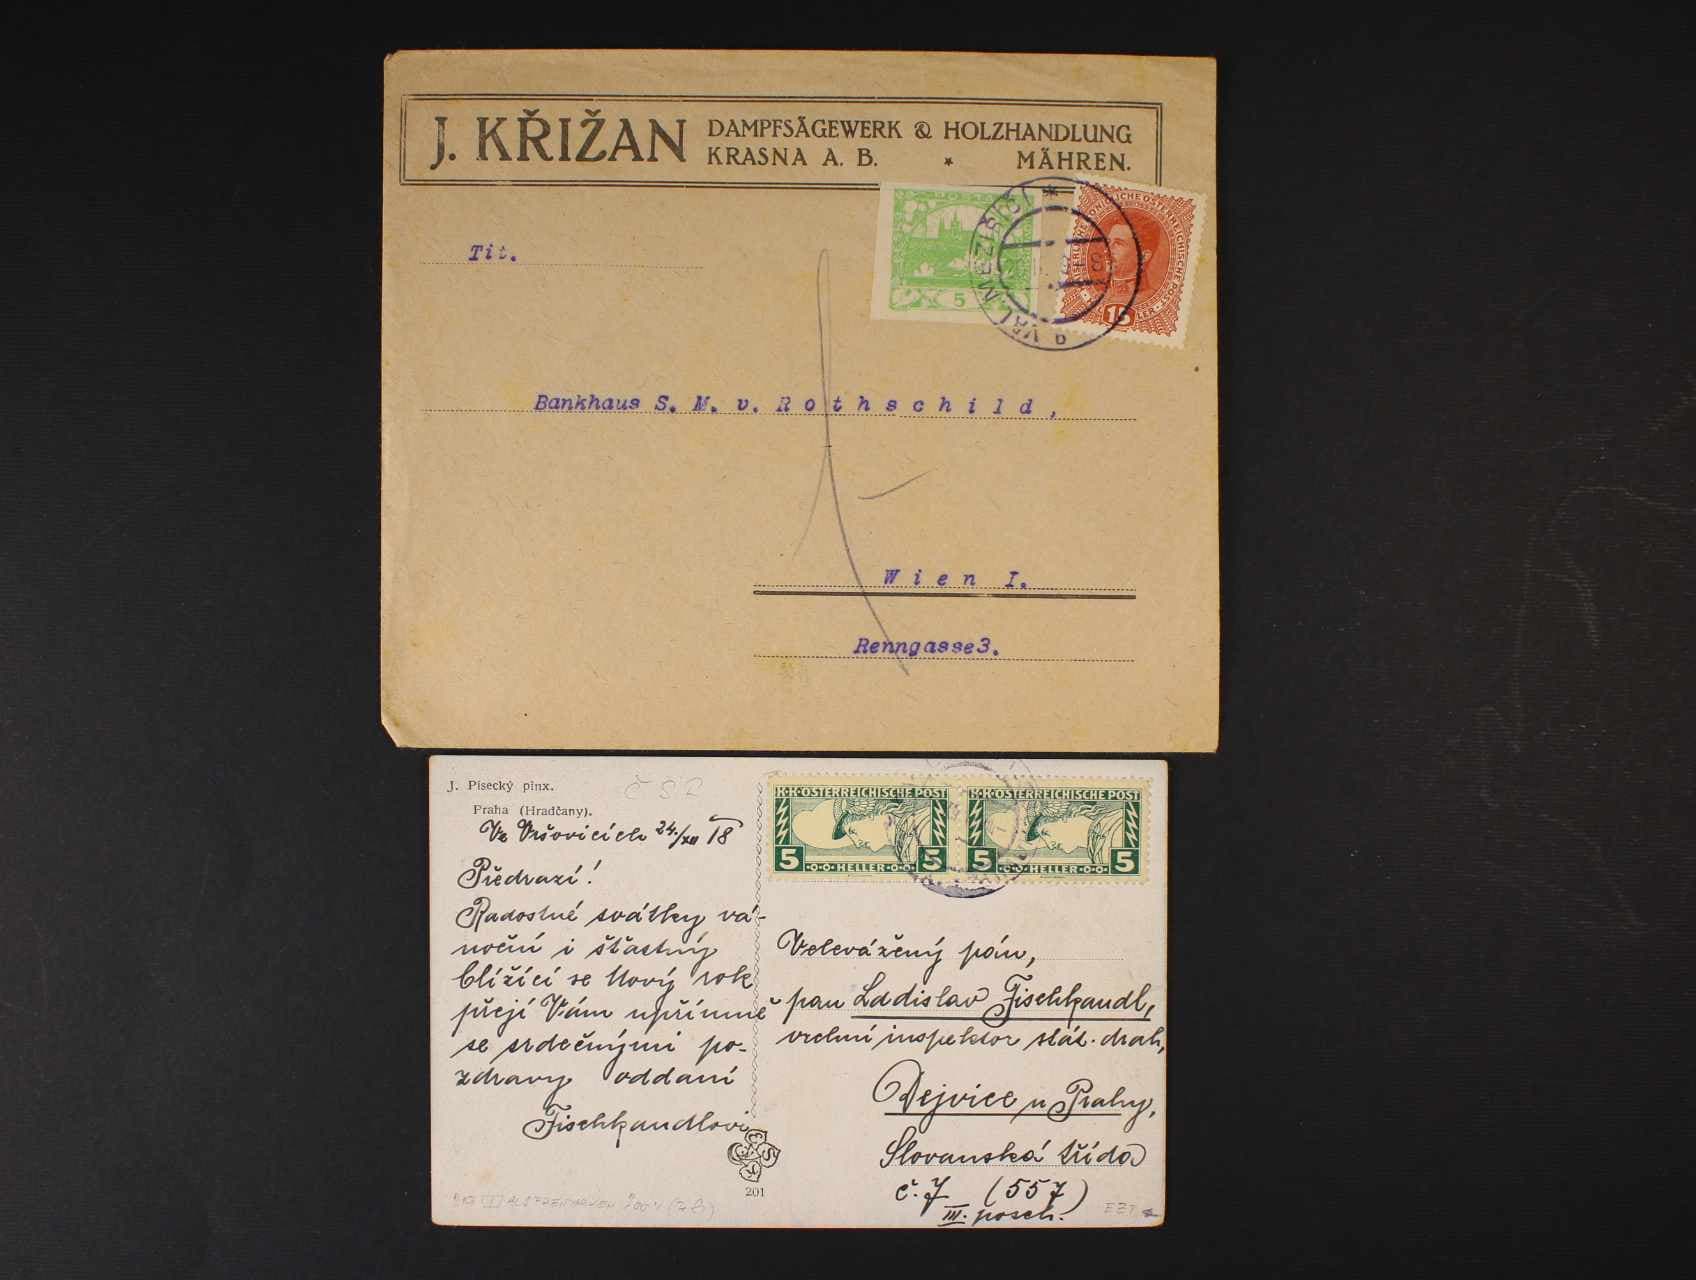 J. KŘIŽAN DAMPFSÄGEWERK & HOLZHANDLUNG
KRASNA A. B. * MÄHREN.
5
KAISERLICHE KÖNIGLICHE ÖSTERREICHISCHE POST
15
VAL. MEZIŘÍČÍ
Tit.
Bankhaus S. M. v. Rothschild,
Wien I.
Renngasse3.
J. Písecký pinx.
Praha (Hradčany).
ČSR
Ve Vršovicích 24./XII 18
Předrazí!
Radostné svátky vá-
noční i šťastný
blížící se Nový rok
přejí Vám upřímně
se srdečnými po-
zdravy oddaní
Fischkandlovi
201
K·K·ÖSTERREICHISCHE POST
5 HELLER 5
K·K·ÖSTERREICHISCHE POST
5 HELLER 5
Velevážený pán,
pan Ladislav Fischkandl,
vrchní inspektor stát. drah,
Dejvice u Prahy,
Slovanská třída
č. 7 (557)
III. posch.